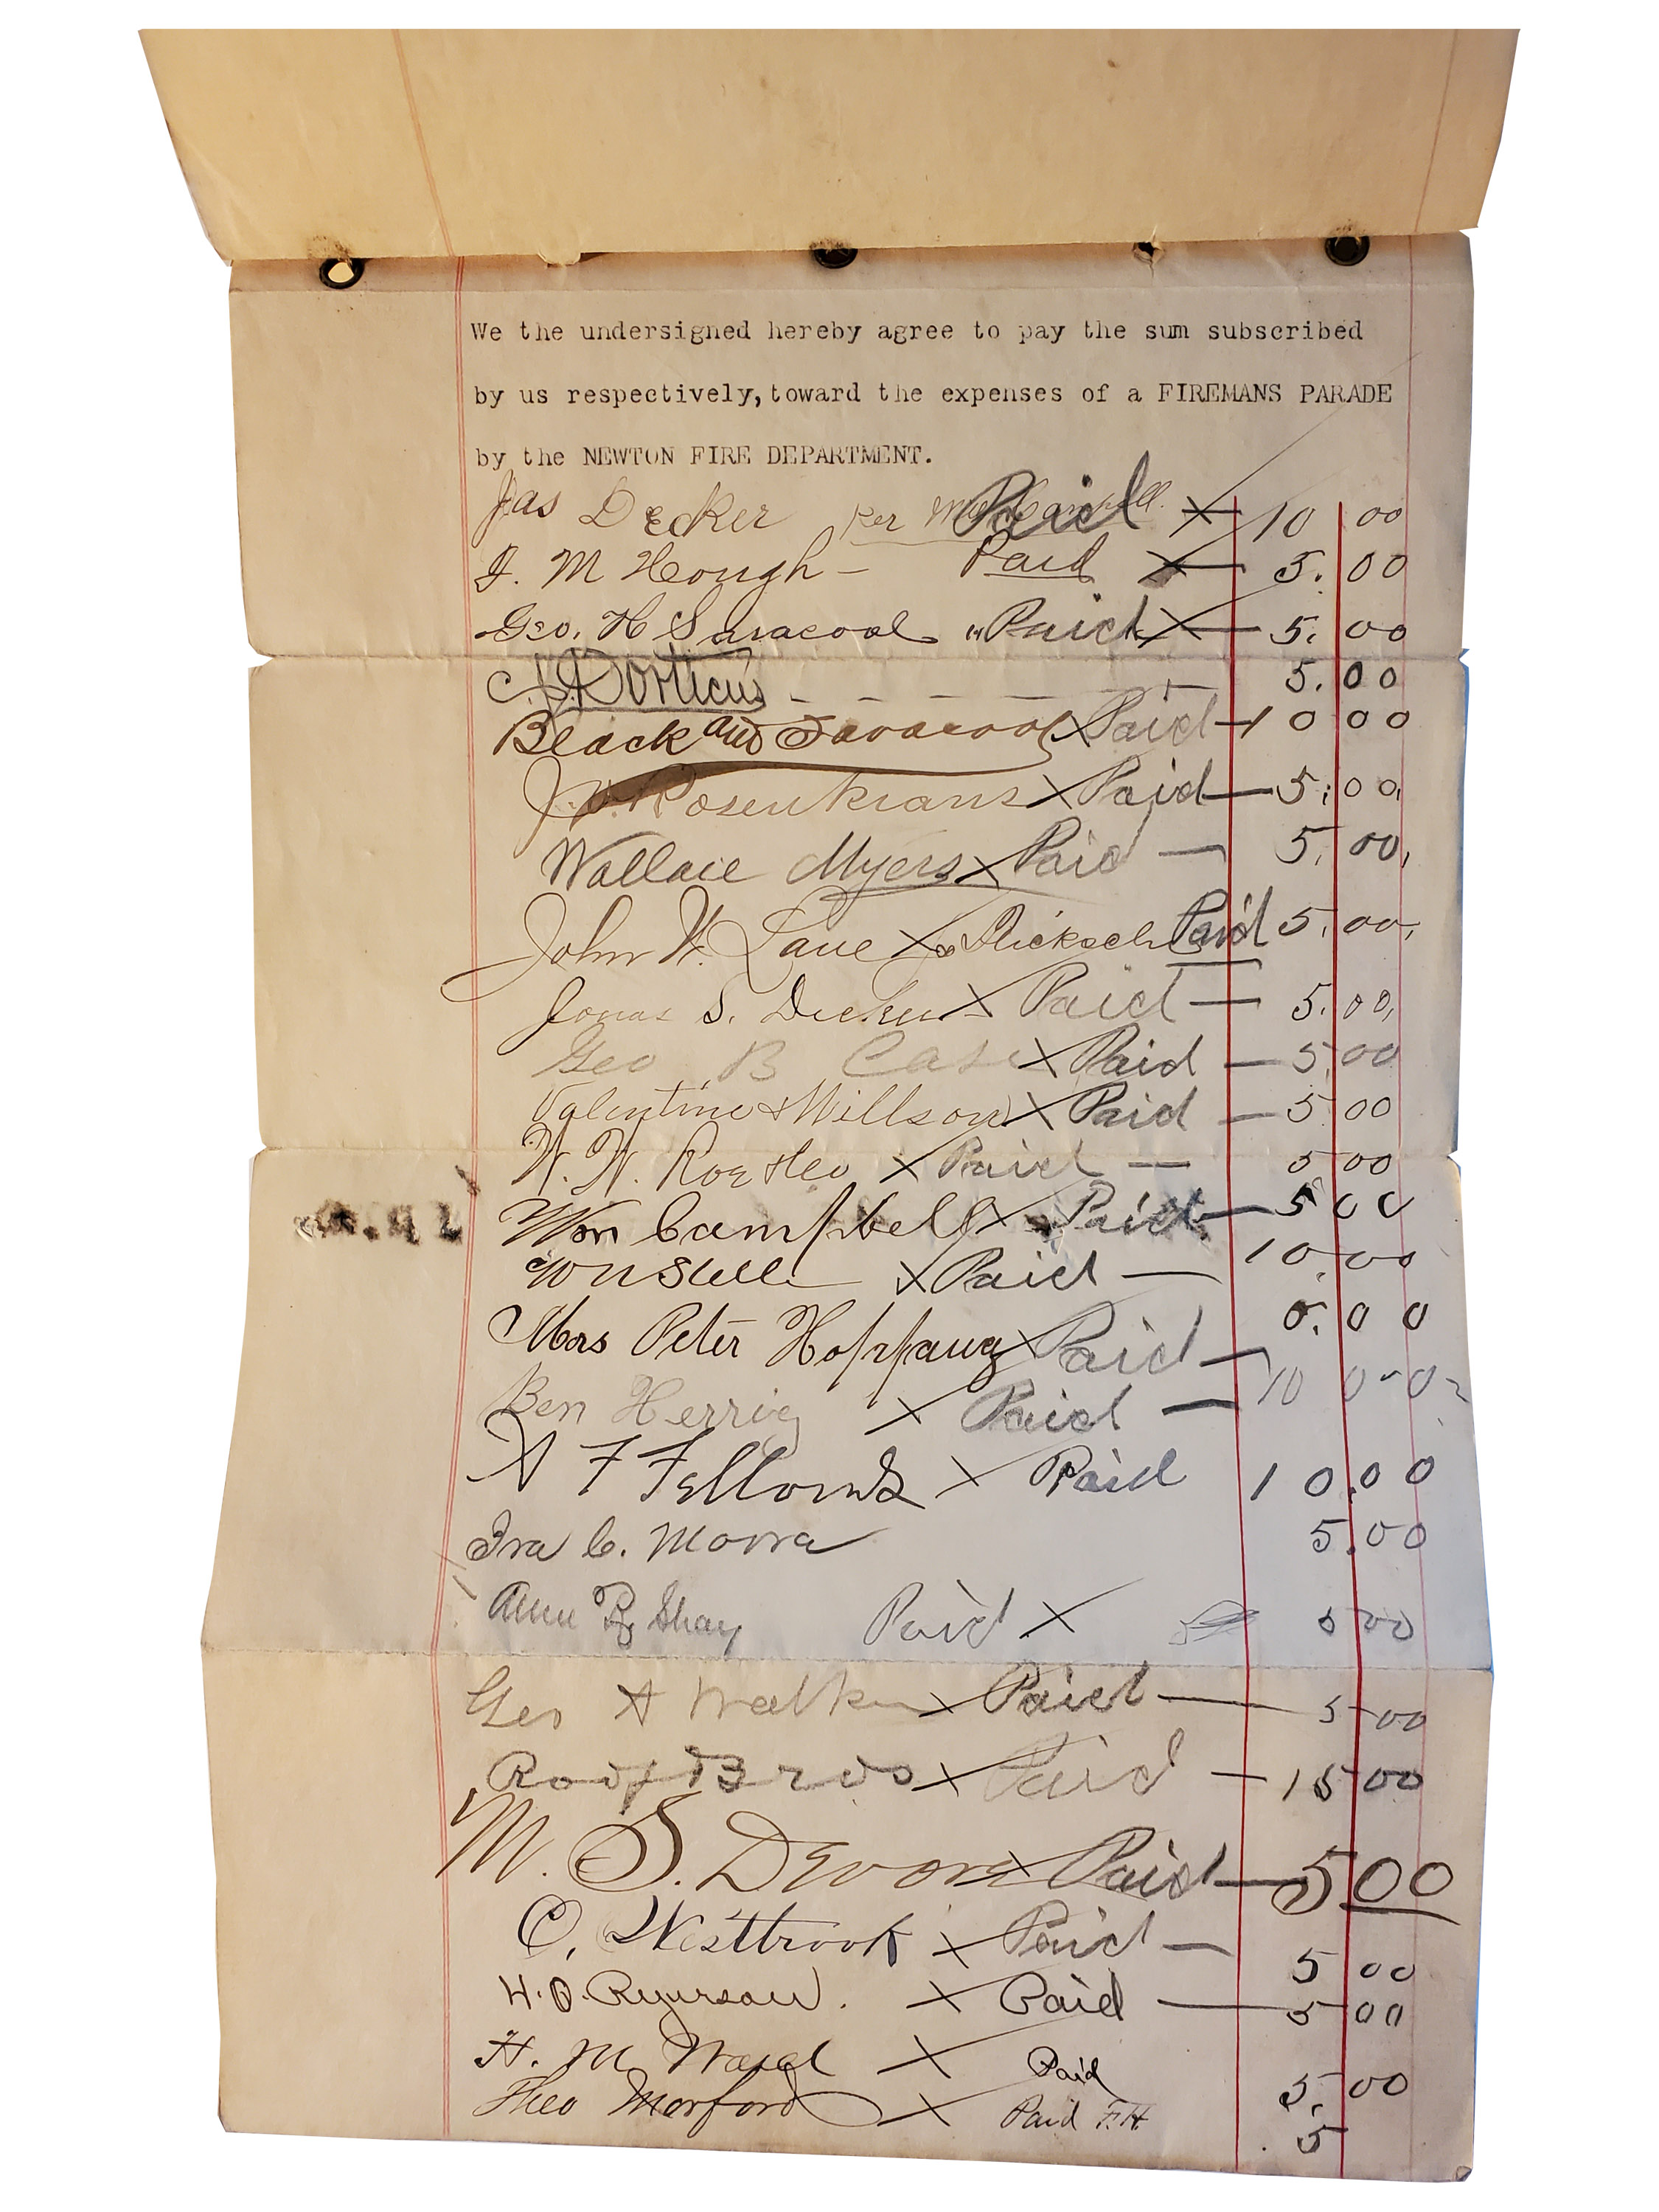 We the undersigned hereby agree to pay the sum subscribed
by us respectively, toward the expenses of a FIREMANS PARADE
by the NEWTON FIRE DEPARTMENT.
Jas Decker Per Wm Campbell. Paid X 10 00
J. M Hough - Paid X 5. 00
Geo. H Savacool " Paid X 5. 00
Dorticus 5. 00
Black and Savacool X Paid 10 00
Rosenkrans X Paid 5. 00
Wallace Myers X Paid 5. 00
John W. Lane X Paid 5. 00
Jonas S. Decker X Paid 5. 00
Geo B Case X Paid 5 00
Valentine & Willson X Paid 5 00
W. W. Roe X Paid 5 00
Wm Campbell X Paid 5 00
X Paid 10.00
Mrs Peter Hoppaug X Paid 5. 00
Ben Herrig X Paid 10 00
A F Fellows X Paid 10.00
Ira C. Moore 5.00
Shay Paid X 5 00
Geo A Walker X Paid 5 00
Roof Bros X Paid 15 00
M. S. Devore X Paid 5 00
O. Westbrook X Paid 5 00
H. O. Ryerson. X Paid 5 00
H. M Ward X Paid 5. 00
Theo Morford X Paid F.H. 5